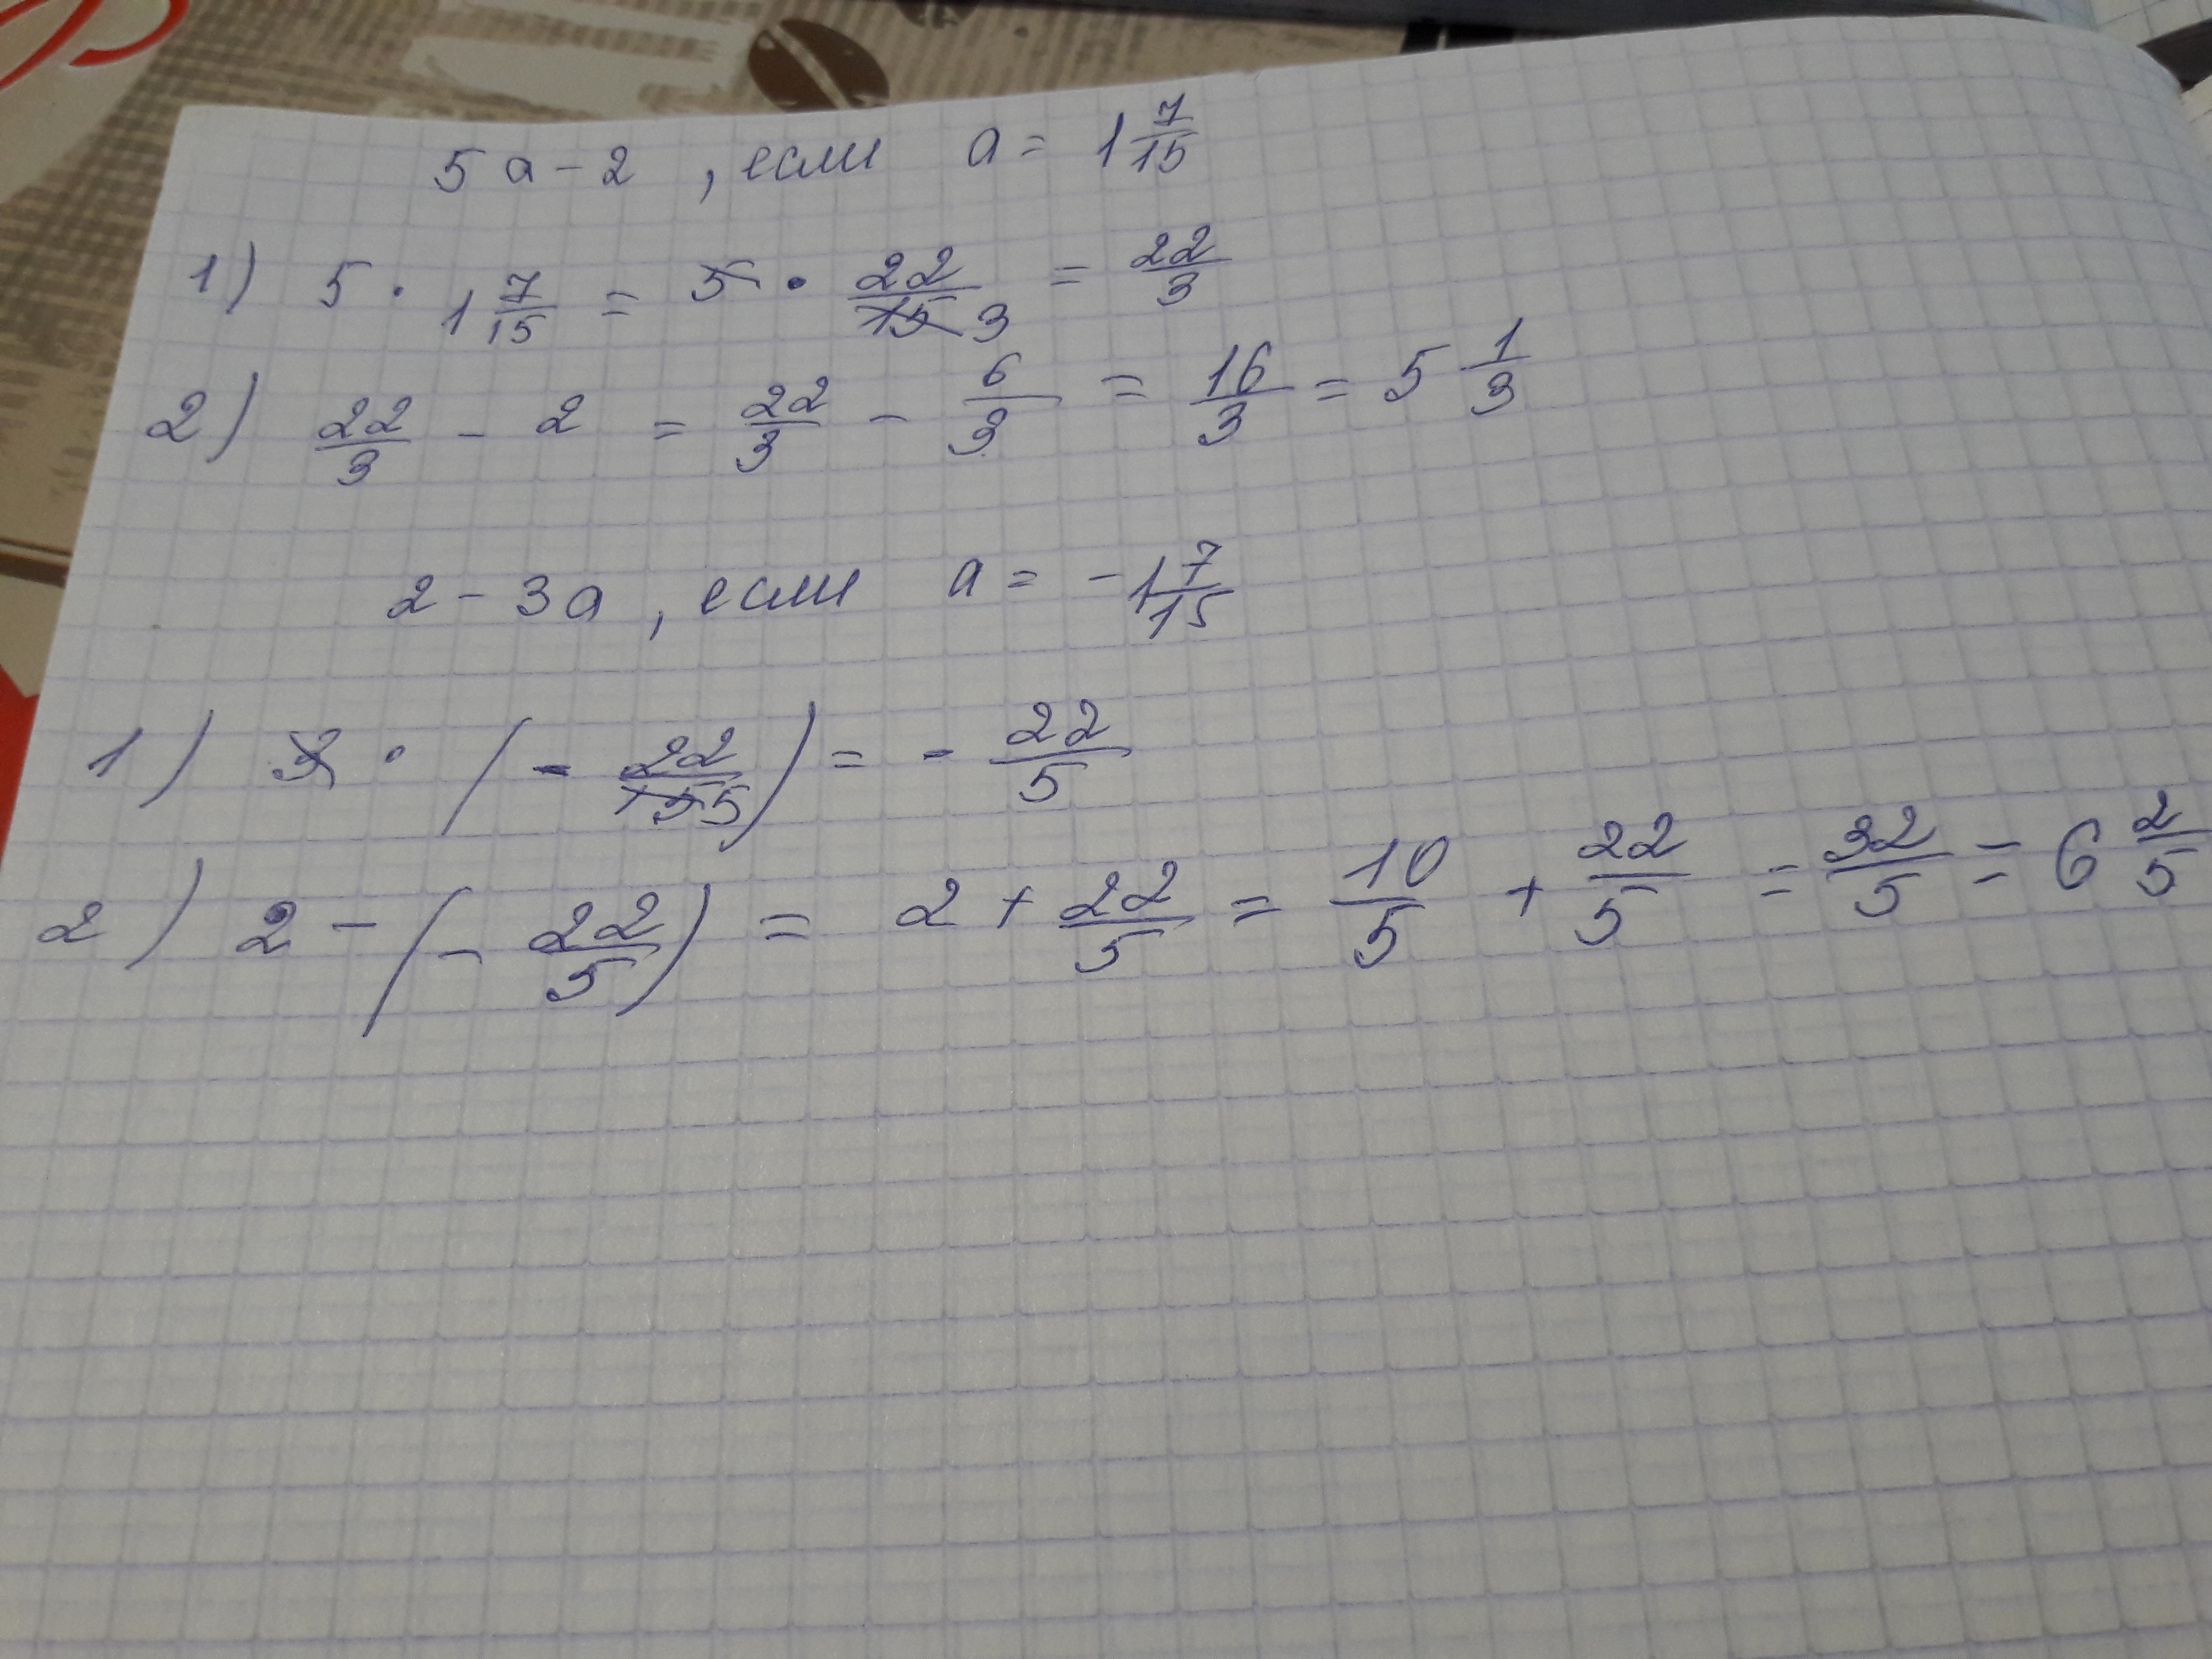 5a - 2, если a = 1 7/15
1) 5 · 1 7/15 = 5 · 22/15 3 = 22/3
2) 22/3 - 2 = 22/3 - 6/3 = 16/3 = 5 1/3
2 - 3a, если a = -1 7/15
1) 3 · (- 22/15 5) = - 22/5
2) 2 - (- 22/5) = 2 + 22/5 = 10/5 + 22/5 = 32/5 = 6 2/5